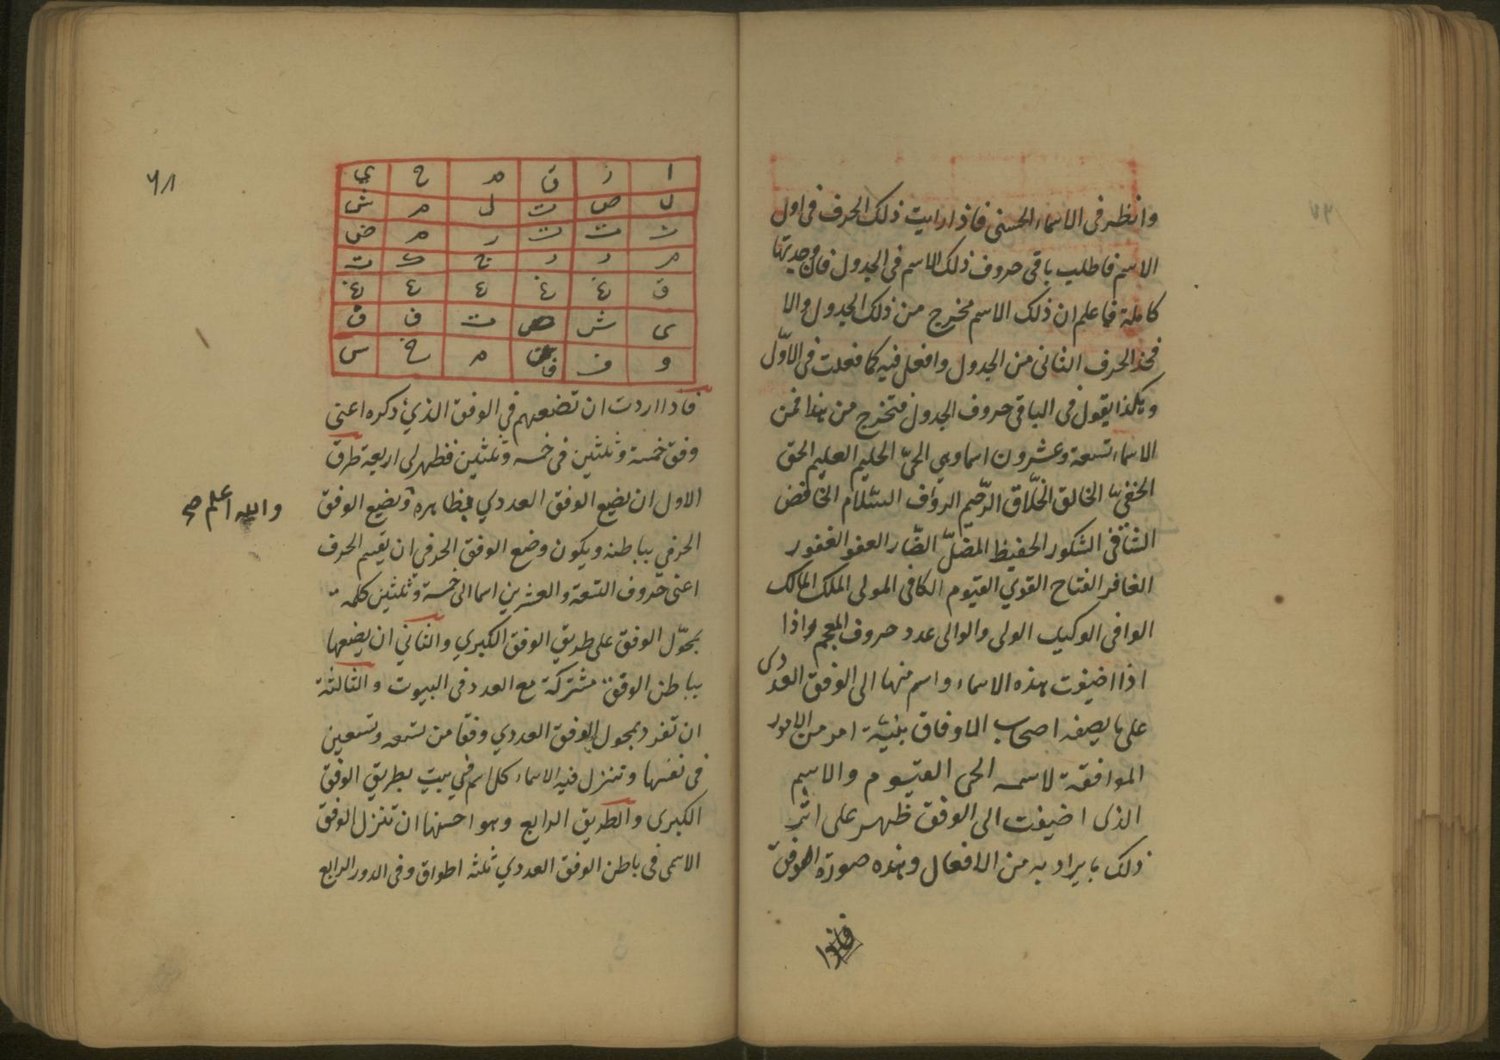 وانظر فى الاسماء الحسنى فاذا رايت ذلك الحرف فى اول
الاسم فاطلب باقى حروف ذلك الاسم فى الجدول فان وجدتها
كاملة فاعلم ان ذلك الاسم مخرج من ذلك الجدول والا
فخذ الحرف الثانى من الجدول وافعل فيه كما فعلت فى الاوّل
وهكذا يقول فى الباقى حروف الجدول فتخرج من هذا فمن
الاسماء تسعة وعشرون اسما وهي الحيّ الحليم العليم الحق
الخفيّ الخالق الخلّاق الرّحيم الرواف السّلام الخافض
الشافى الشكور الحفيظ المضلّ الضّار العفو الغفور
الغافر الفتاح القوي القيّوم الكافى المولى الملك المالك
الوافى الوكيل الولى والوالى عدد حروف المعجم واذا
اذا اضيفت هذه الاسماء واسم منها الى الوفق العددى
على ما يصفه اصحاب الاوفاق بنيّة امر من الامور
الموافقة لاسمه الحى القيّوم والاسم
الذى اضيفت الى الوفق ظهر على اثر
ذلك ما يراد به من الافعال وهذه صورة الوفق
فاذا
٦٨
ا ز ق م ح ي
ل ص ت ل م ش
ث ت ت ر م ض
م د د ح ك ت
ق غ غ ع ع غ
ى ش ص ت ف ق
و ف ق م خ س
فاذا اردت ان تضعهم في الوفق الذي ذكره اعنى
وفق خمسة وثلثين فى خمسه وثلثين فظهر لى اربعة طرق
الاول ان يضع الوفق العددي بظاهره ويضع الوفق
الحرفي بباطنه ويكون وضع الوفق الحرفي ان يقسم الحرف
والله اعلم صح
اعنى حروف التسعة والعشرين اسما الى خمسة وثلثين كلمه
بحوّل الوفق على طريق الوفق الكبري والثاني ان يضعها
بباطن الوفق مشتركة مع العدد فى البيوت والثالثة
ان تفرد بحول الوفق العددي وفقا من تسعه وتسعين
فى نفسها وتنزل فيه الاسماء كل اسم في بيت بطريق الوفق
الكبرى والطريق الرابع وهو احسنها ان تنزل الوفق
الاسمى فى باطن الوفق العددي ثلثه اطواق وفى الدور الرابع